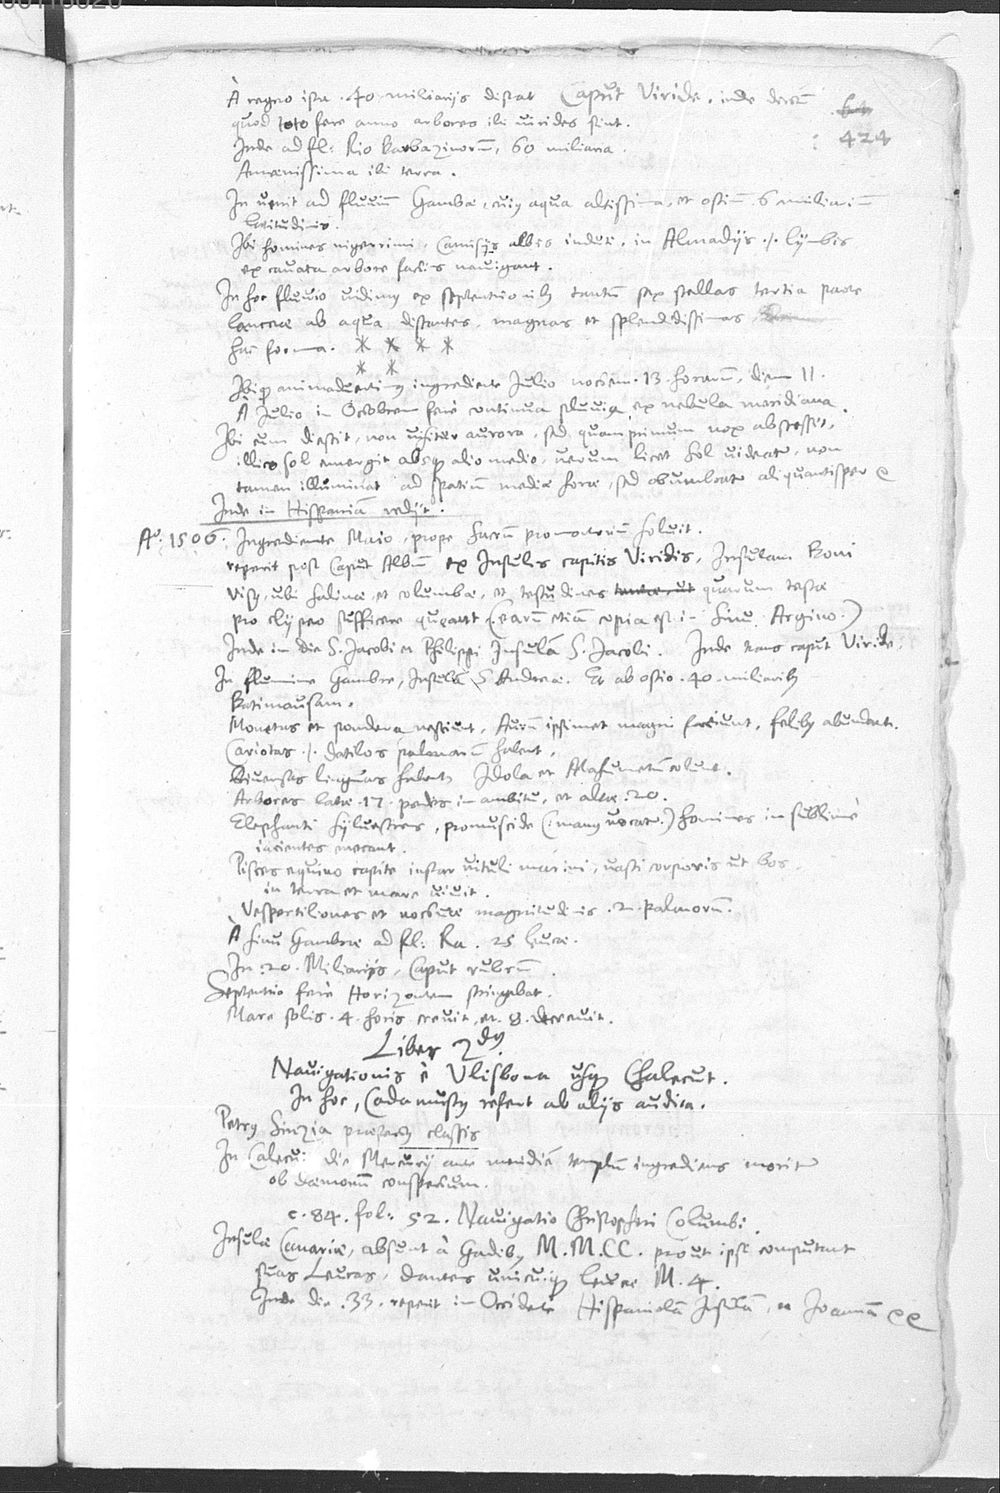 A regno isto .40. miliarijs distat Caput Viride, inde dictū
424
quod toto fere anno arbores ibi virides sint.
Inde ad fl: Rio Barbazinorū, 60 miliaria.
Amœnissima ibi terra.
In venit ad fluviū Gambæ, cuiꝰ aqua altissima, et ostiū .6. miliariū
latitudinis.
Ibi homines nigerrimi, Camisijs albis induti, in Almadijs ./. lymbis
ex cavata arbore factis navigant.
In hoc fluvio vidimꝰ ex septentrionibꝰ tantū sex stellas tertia parte
lanceæ ab aqua distantes, magnas et splendidissimas
hac forma. * * * *
* *
Ibiqꝫ animadvertimꝰ ingrediente Julio noctem .13. horarū, diem 11.
A Julio in Octobrem ferè continua pluvia, ex nebula meridiana.
Ibi cum diescit, non visitur aurora, sed quamprimum nox abscessit,
illico sol emergit absqꝫ alio medio, verum licet sol videatur, non
tamen illuminat ad spatiū mediæ horæ, sed obumbratꝰ aliquantisper &
Inde in Hispaniā redijt.
Aº. 1506. Ingrediente Maio, prope sacrū promontoriū soluit.
reperit post Caput Album ex Insulis capitis Viridis, Insulam Boni
visꝰ, ubi salinæ, et columbæ, et testudines quarum testæ
pro clypeo sufficere queant (earū etiā copia est in sinu Argino.)
Inde in die S. Jacobi et Philippi Insulā S. Jacobi. Inde trans caput Viride.
In flumine Gambre, Insulā S. Andreæ. Et ab ostio .40. miliaribꝰ
Batimausam.
Monetas et pondera nesciunt, Aurū ipsimet magni faciunt, felibꝰ abundant.
Cariotas ./. datilos palmarū habent.
Diversas linguas habent, Idola et Mahumetū colunt.
Arbores latæ .17. pedes in ambitu, et altæ .20.
Elephanti sylvestres, promuscide (: manꝰ vocatꝰ :) homines in sublime
iacientes necant.
Pisces equino capite instar vituli marini, vasti corporis ut bos
in terra et mare vivit.
Vespertiliones et noctuæ magnitudinis .2. palmorū.
A sinu Gambræ ad fl: Ra. 25 leucæ.
In .20. Miliarijs, Caput rubrū.
Septentrio ferè Horizontem stringebat.
Mare solis .4. horis crevit, et .8. decrevit.
Liber 2dꝰ
Navigationis è Vlisbona usqꝫ Chalecut.
In hoc, Cadamustꝰ refert ab alijs audita.
Petrꝰ Sinzia præfectꝰ classis
In Calecu: die Mercurij ante meridiē templū ingrediens moritur
ob dæmonū conspectum.
c. 84. fol: 52. Navigatio Christopheri Columbi.
Insulæ Canariæ, absunt à Gadibꝰ M.M.CC. prout ipsi computant
suas Leucas, dantes unicuiqꝫ leucæ M. 4.
Inde die .33. reperit in Occidente Hispaniolā Insulā, et Joannā &&